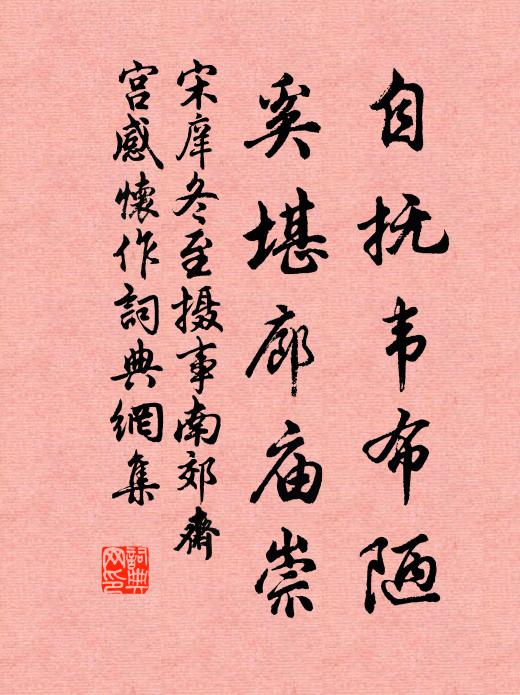 自抚韦布陋
奚堪廊庙崇
宋庠冬至摄事南郊斋
宫感懷作詞典網集
詞典网印